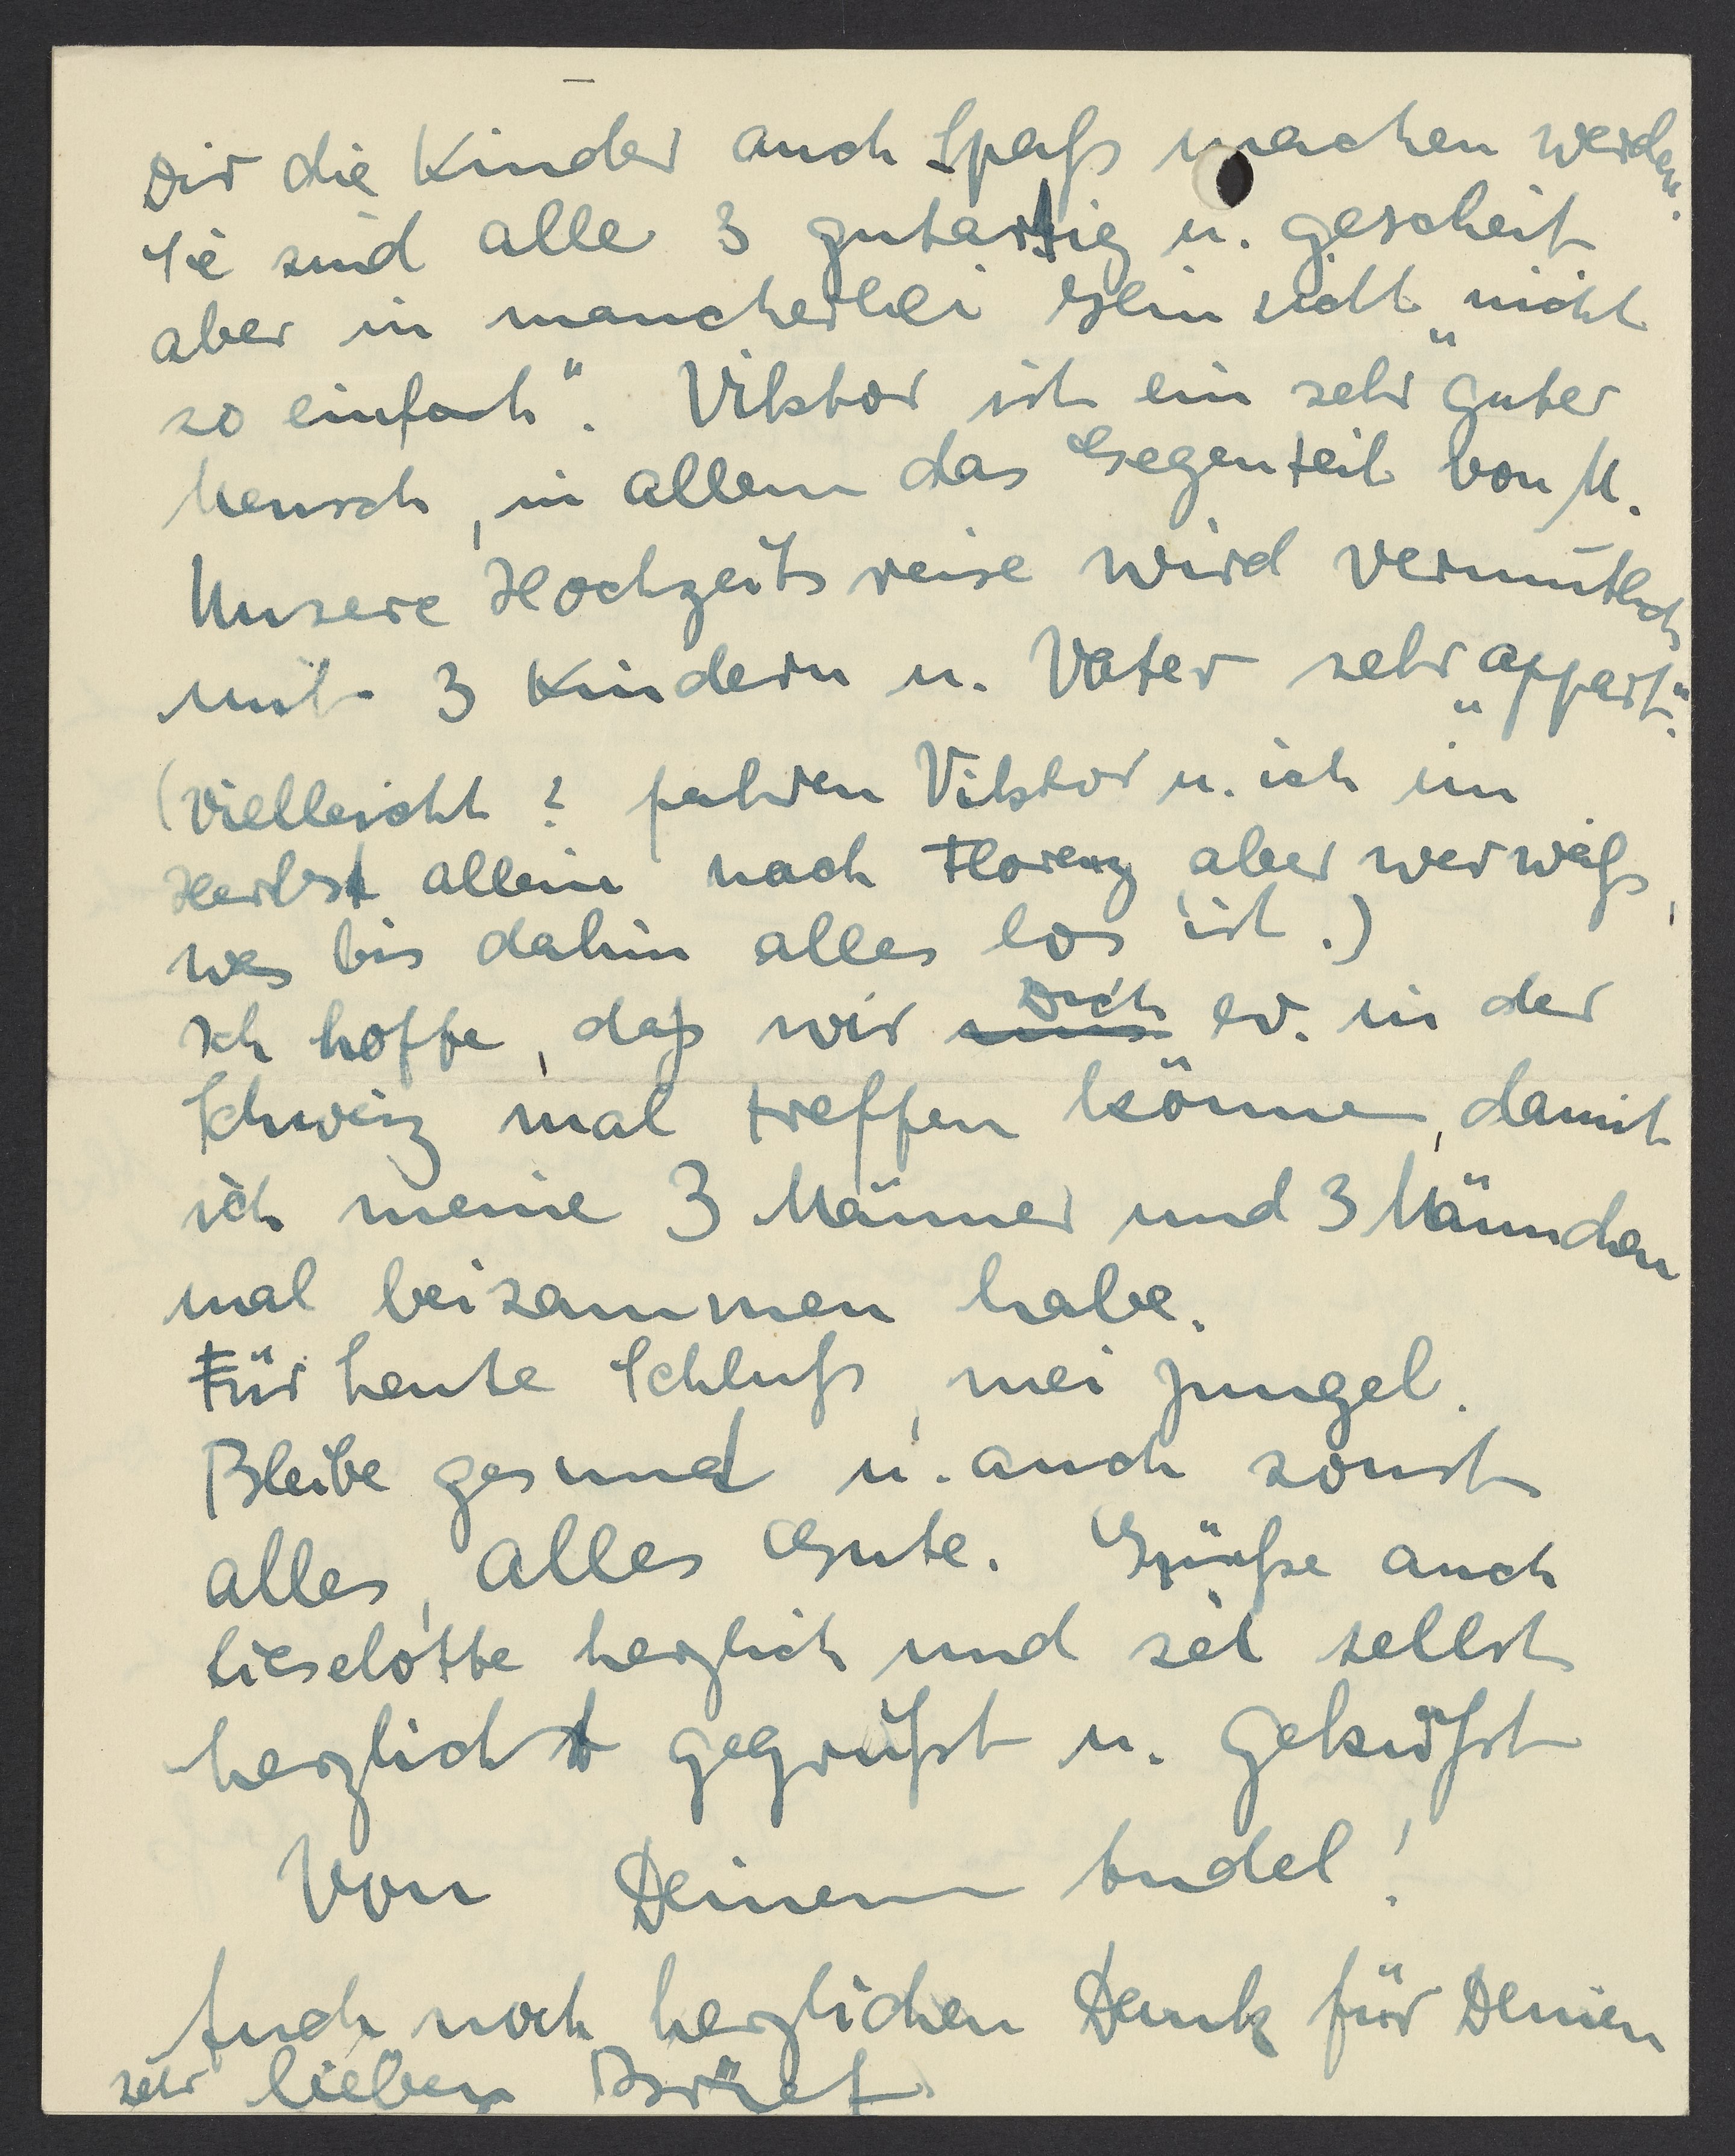 Dir die Kinder auch Spaß machen werden.
Sie sind alle 3 gutartig u. gescheit
aber in mancherlei Hinsicht „nicht
so einfach". Viktor ist ein sehr guter
Mensch, in allem das Gegenteil von M.
Unsere Hochzeitsreise wird vermutlich
mit 3 Kindern u. Vater sehr „appart".
(Vielleicht ? fahren Viktor u. ich im
Herbst allein nach Florenz, aber wer weiß,
was bis dahin alles los ist.)
Ich hoffe, daß wir uns Dich ev. in der
Schweiz mal treffen können, damit
ich meine 3 Männer und 3 Männchen
mal beisammen habe.
Für heute Schluß, mei Jungel.
Bleibe gesund u. auch sonst
alles, alles Gute. Grüße auch
Lieselotte herzlich und sei selbst
herzlichst gegrüßt u. geküßt
Von Deinem Mudel!
Auch noch herzlichen Dank für Deinen
sehr lieben Brief